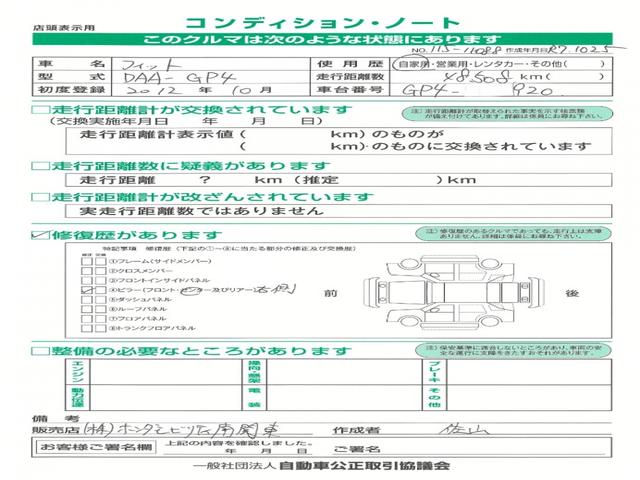 店頭表示用 コンディション・ノート
このクルマは次のような状態にあります
NO. 115-11088 作成年月日R7.10.25
車名 フィット 使用歴 自家用・営業用・レンタカー・その他( )
型式 DAA-GP4 走行距離数 48,508 km( )
初度登録 2012年10月 車台番号 GP4- 920
□走行距離計が交換されています
(交換実施年月日 年 月 日)
注)走行距離計が取替えられた事実を示す帳票類が備え付けてあります。詳細は係員にお尋ね下さい。
走行距離計表示値( km)のものが
( km)・のものに交換されています
□走行距離数に疑義があります
走行距離 ? km(推定 )km
□走行距離計が改ざんされています
実走行距離数ではありません
☑修復歴があります
注)修復歴のあるクルマであっても、走行上は支障ありません。詳細は係員にお尋ね下さい。
特記事項 修復歴(下記の①~⑧に当たる部分の修正及び交換歴)
修正 交換
①フレーム(サイドメンバー)
②クロスメンバー
③フロントインサイドパネル
④ピラー(フロント・センター及びリアー 右側
⑤ダッシュパネル
⑥ルーフパネル
⑦フロアパネル
⑧トランクフロアパネル
前 後
□整備の必要なところがあります
注)保安基準に適合しないところがあり、車両の安全な運行に支障をきたすおそれがあります。
エンジン ブレーキ
動力伝達 電装 その他
備考
販売店 (株)ホンダモビリティ南関東 作成者 佐山
お客様ご署名欄 上記の内容を確認しました。
年 月 日 ご署名
一般社団法人 自動車公正取引協議会